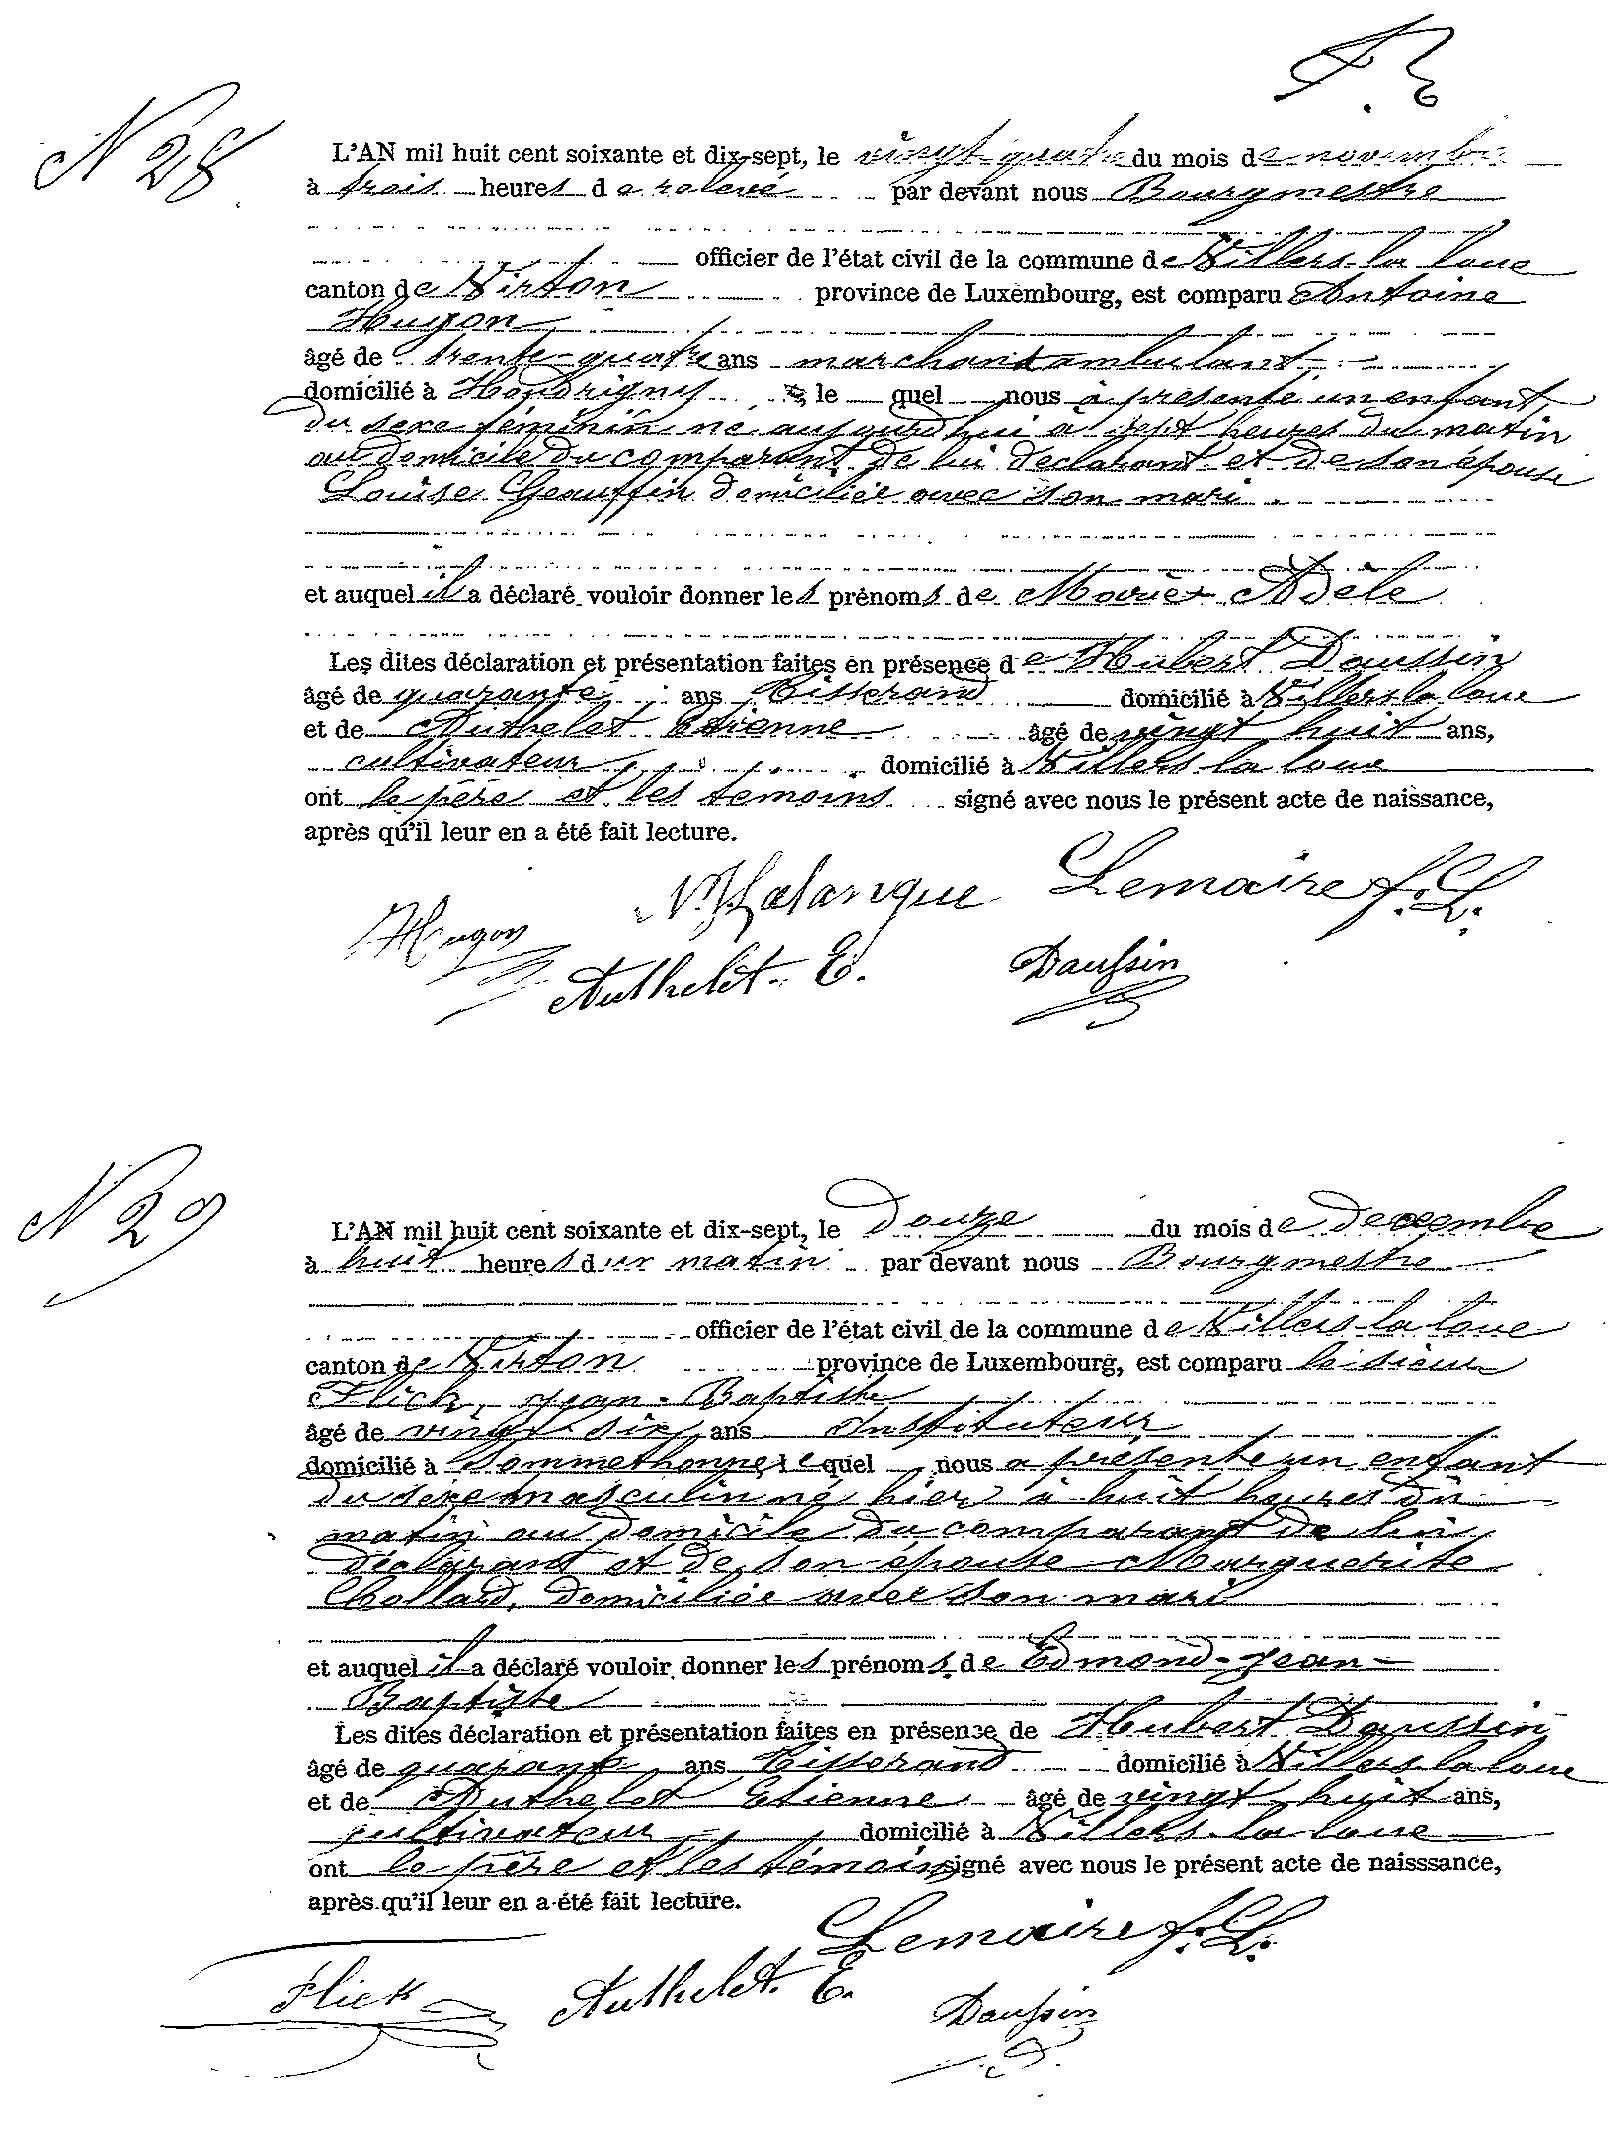 N 28
L'AN mil huit cent soixante et dix-sept, le vingt quatre du mois de novembre
à trois heures de relevé par devant nous Bourgmestre
officier de l'état civil de la commune de Villers la loue
canton de Virton province de Luxembourg, est comparu Antoine
Hugon
âgé de trente-quatre ans marchand ambulant
domicilié à Houdrigny le quel nous à présenté un enfant
du sexe féminin né aujourd'hui à sept heures du matin
au domicile du comparant de lui déclarant et de son épouse
Louise Geauffin domiciliée avec son mari
et auquel il a déclaré vouloir donner les prénoms de Marie Adèle
Les dites déclaration et présentation faites en présence de Hubert Daussin
âgé de quarante ans Tisserand domicilié à Villers la loue
et de Authelet Etienne âgé de vingt huit ans,
cultivateur domicilié à Villers la loue
ont le père et les témoins signé avec nous le présent acte de naissance,
après qu'il leur en a été fait lecture.
Lalangue Lemaire f. L.
Hugon
Authelet. E. Daussin
N 29
L'AN mil huit cent soixante et dix-sept, le douze du mois de decembre
à huit heures du matin par devant nous Bourgmestre
officier de l'état civil de la commune de Villers la loue
canton de Virton province de Luxembourg, est comparu le sieur
Flick, Jean-Baptiste
âgé de vingt six ans Instituteur
domicilié à Sommethonne le quel nous a présenté un enfant
du sexe masculin né hier à huit heures du
matin au domicile du comparant de lui
déclarant et de son épouse Marguerite
Collard, domiciliée avec son mari
et auquel il a déclaré vouloir donner les prénoms de Edmond-Jean-
Baptiste
Les dites déclaration et présentation faites en présence de Hubert Daussin
âgé de quarante ans Tisserand domicilié à Villers la loue
et de Authelet Etienne âgé de vingt huit ans,
cultivateur domicilié à Villers la loue
ont le père et les témoins signé avec nous le présent acte de naisssance,
après qu'il leur en a été fait lecture.
Lemaire f. L.
Flick Authelet. E.
Daussin